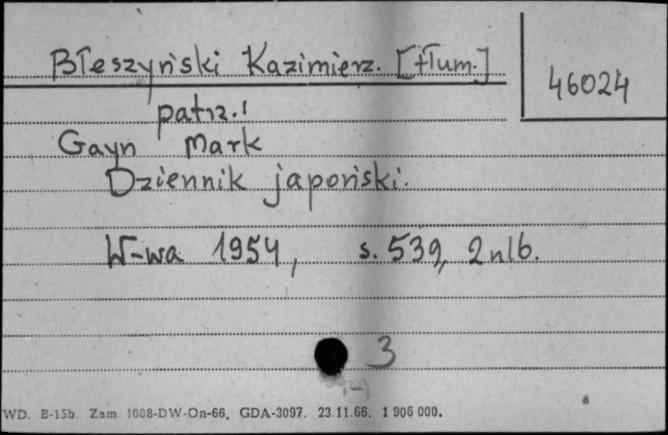 Błeszyński Kazimierz. [tłum.]
46024
patrz.!
Gayn Mark
Dziennik japoński.
W-wa 1954, s. 539, 2 nlb.
3
(-)
WD. B-15b. Zam 1008-DW-On-66, GDA-3097. 23.11.66. 1 906 000.